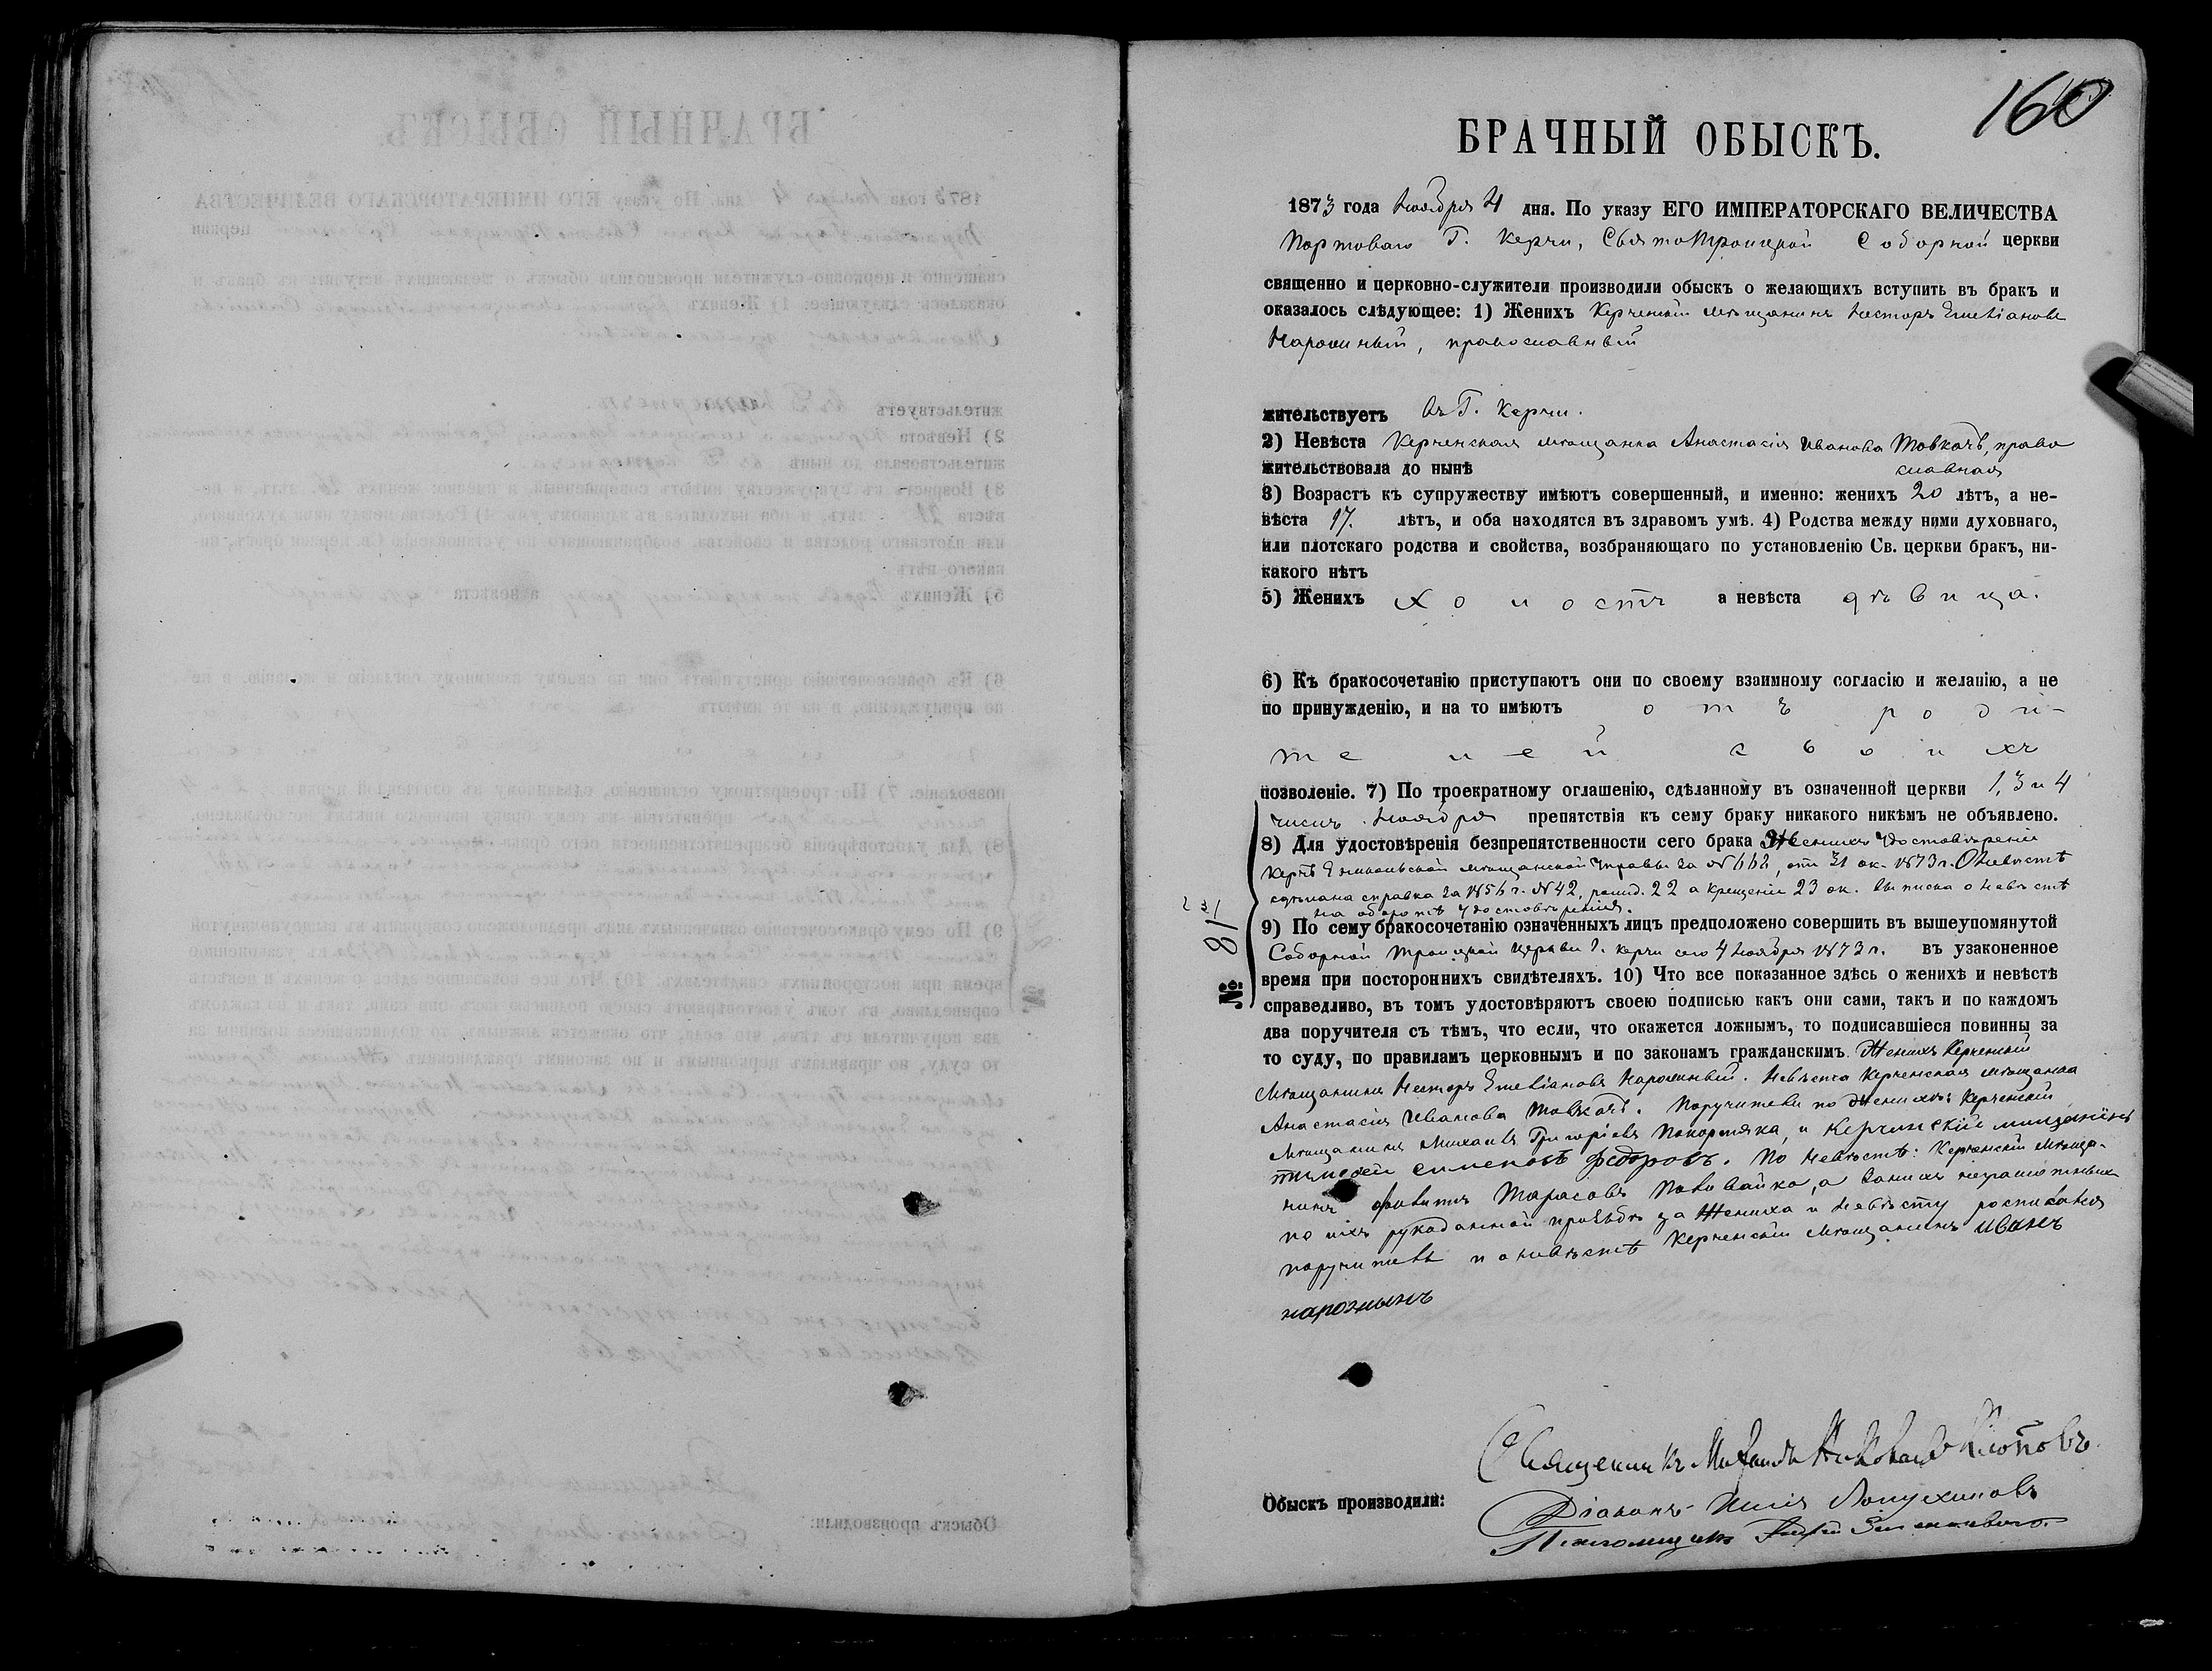 160
БРАЧНЫЙ ОБЫСКЪ.
1873 года Ноября 4 дня. По указу ЕГО ИМПЕРАТОРСКАГО ВЕЛИЧЕСТВА
Портоваго Г. Керчи, СвятоТроицкой Соборной церкви
священно и церковно-служители производили обыскъ о желающихъ вступить въ бракъ и
оказалось слѣдующее: 1) Женихъ Керченскій мѣщанинъ Несторъ Емеліановъ
православный
жительствуетъ въ Г. Керчи.
2) Невѣста Керченская мѣщанка Анастасія Иванова Товкачъ, право
жительствовала до нынѣ славная
3) Возрастъ къ супружеству имѣютъ совершенный, и именно: женихъ 20 лѣтъ, а не-
вѣста 17. лѣтъ, и оба находятся въ здравомъ умѣ. 4) Родства между ними духовнаго,
или плотскаго родства и свойства, возбраняющаго по установленію Св. церкви бракъ, ни-
какого нѣтъ
5) Женихъ холостъ а невѣста дѣвица.
6) Къ бракосочетанію приступаютъ они по своему взаимному согласію и желанію, а не
по принужденію, и на то имѣютъ отъ роди-
телей своихъ
позволеніе. 7) По троекратному оглашенію, сдѣланному въ означенной церкви 1, 3 и 4
числъ Ноября препятствія къ сему браку никакого никѣмъ не объявлено.
8) Для удостовѣренія безпрепятственности сего брака Женихъ удостовѣреніи
Керчь Еникольской мѣщанской Управы за № 663, отъ 31 ок. 1873 г. О Невѣстѣ
сдѣлана справка за 1856 г. № 42, рожд. 22 а крещеніи 23 ок. Выписка о невѣстѣ
на оборотѣ удостовѣренія.
9) По сему бракосочетанію означенныхъ лицъ предположено совершить въ вышеупомянутой
Соборной Троицкой церкви г. Керчи сего 4 Ноября 1873 г. въ узаконенное
время при постороннихъ свидѣтеляхъ. 10) Что все показанное здѣсь о женихѣ и невѣстѣ
№ 81
справедливо, въ томъ удостовѣряютъ своею подписью какъ они сами, такъ и по каждомъ
два поручителя съ тѣмъ, что если, что окажется ложнымъ, то подписавшіеся повинны за
то суду, по правиламъ церковнымъ и по законамъ гражданскимъ. Женихъ Керченскій
Мѣщанинъ Несторъ Емеліановъ Невѣста Керченская мѣщанка
Анастасія Иванова Товкачъ. Поручители по женихѣ: Керченскій
Мѣщанинъ Михаилъ Григорьевъ и керчинский мищанинъ
тимофей семеновъ федоровъ. По Невѣстѣ: Керченскій мѣща-
нинъ Филипъ Тарасовъ Наливайко, а за нихъ неграмотныхъ
по ихъ рукоданной прозьбѣ за Жениха и Невѣсту росписался
поручитель по невѣстѣ Керченскій Мѣщанинъ иванъ
Священникъ Михаилъ Котовъ.
Обыскъ производили:
Діаконъ Илія Лопухиновъ